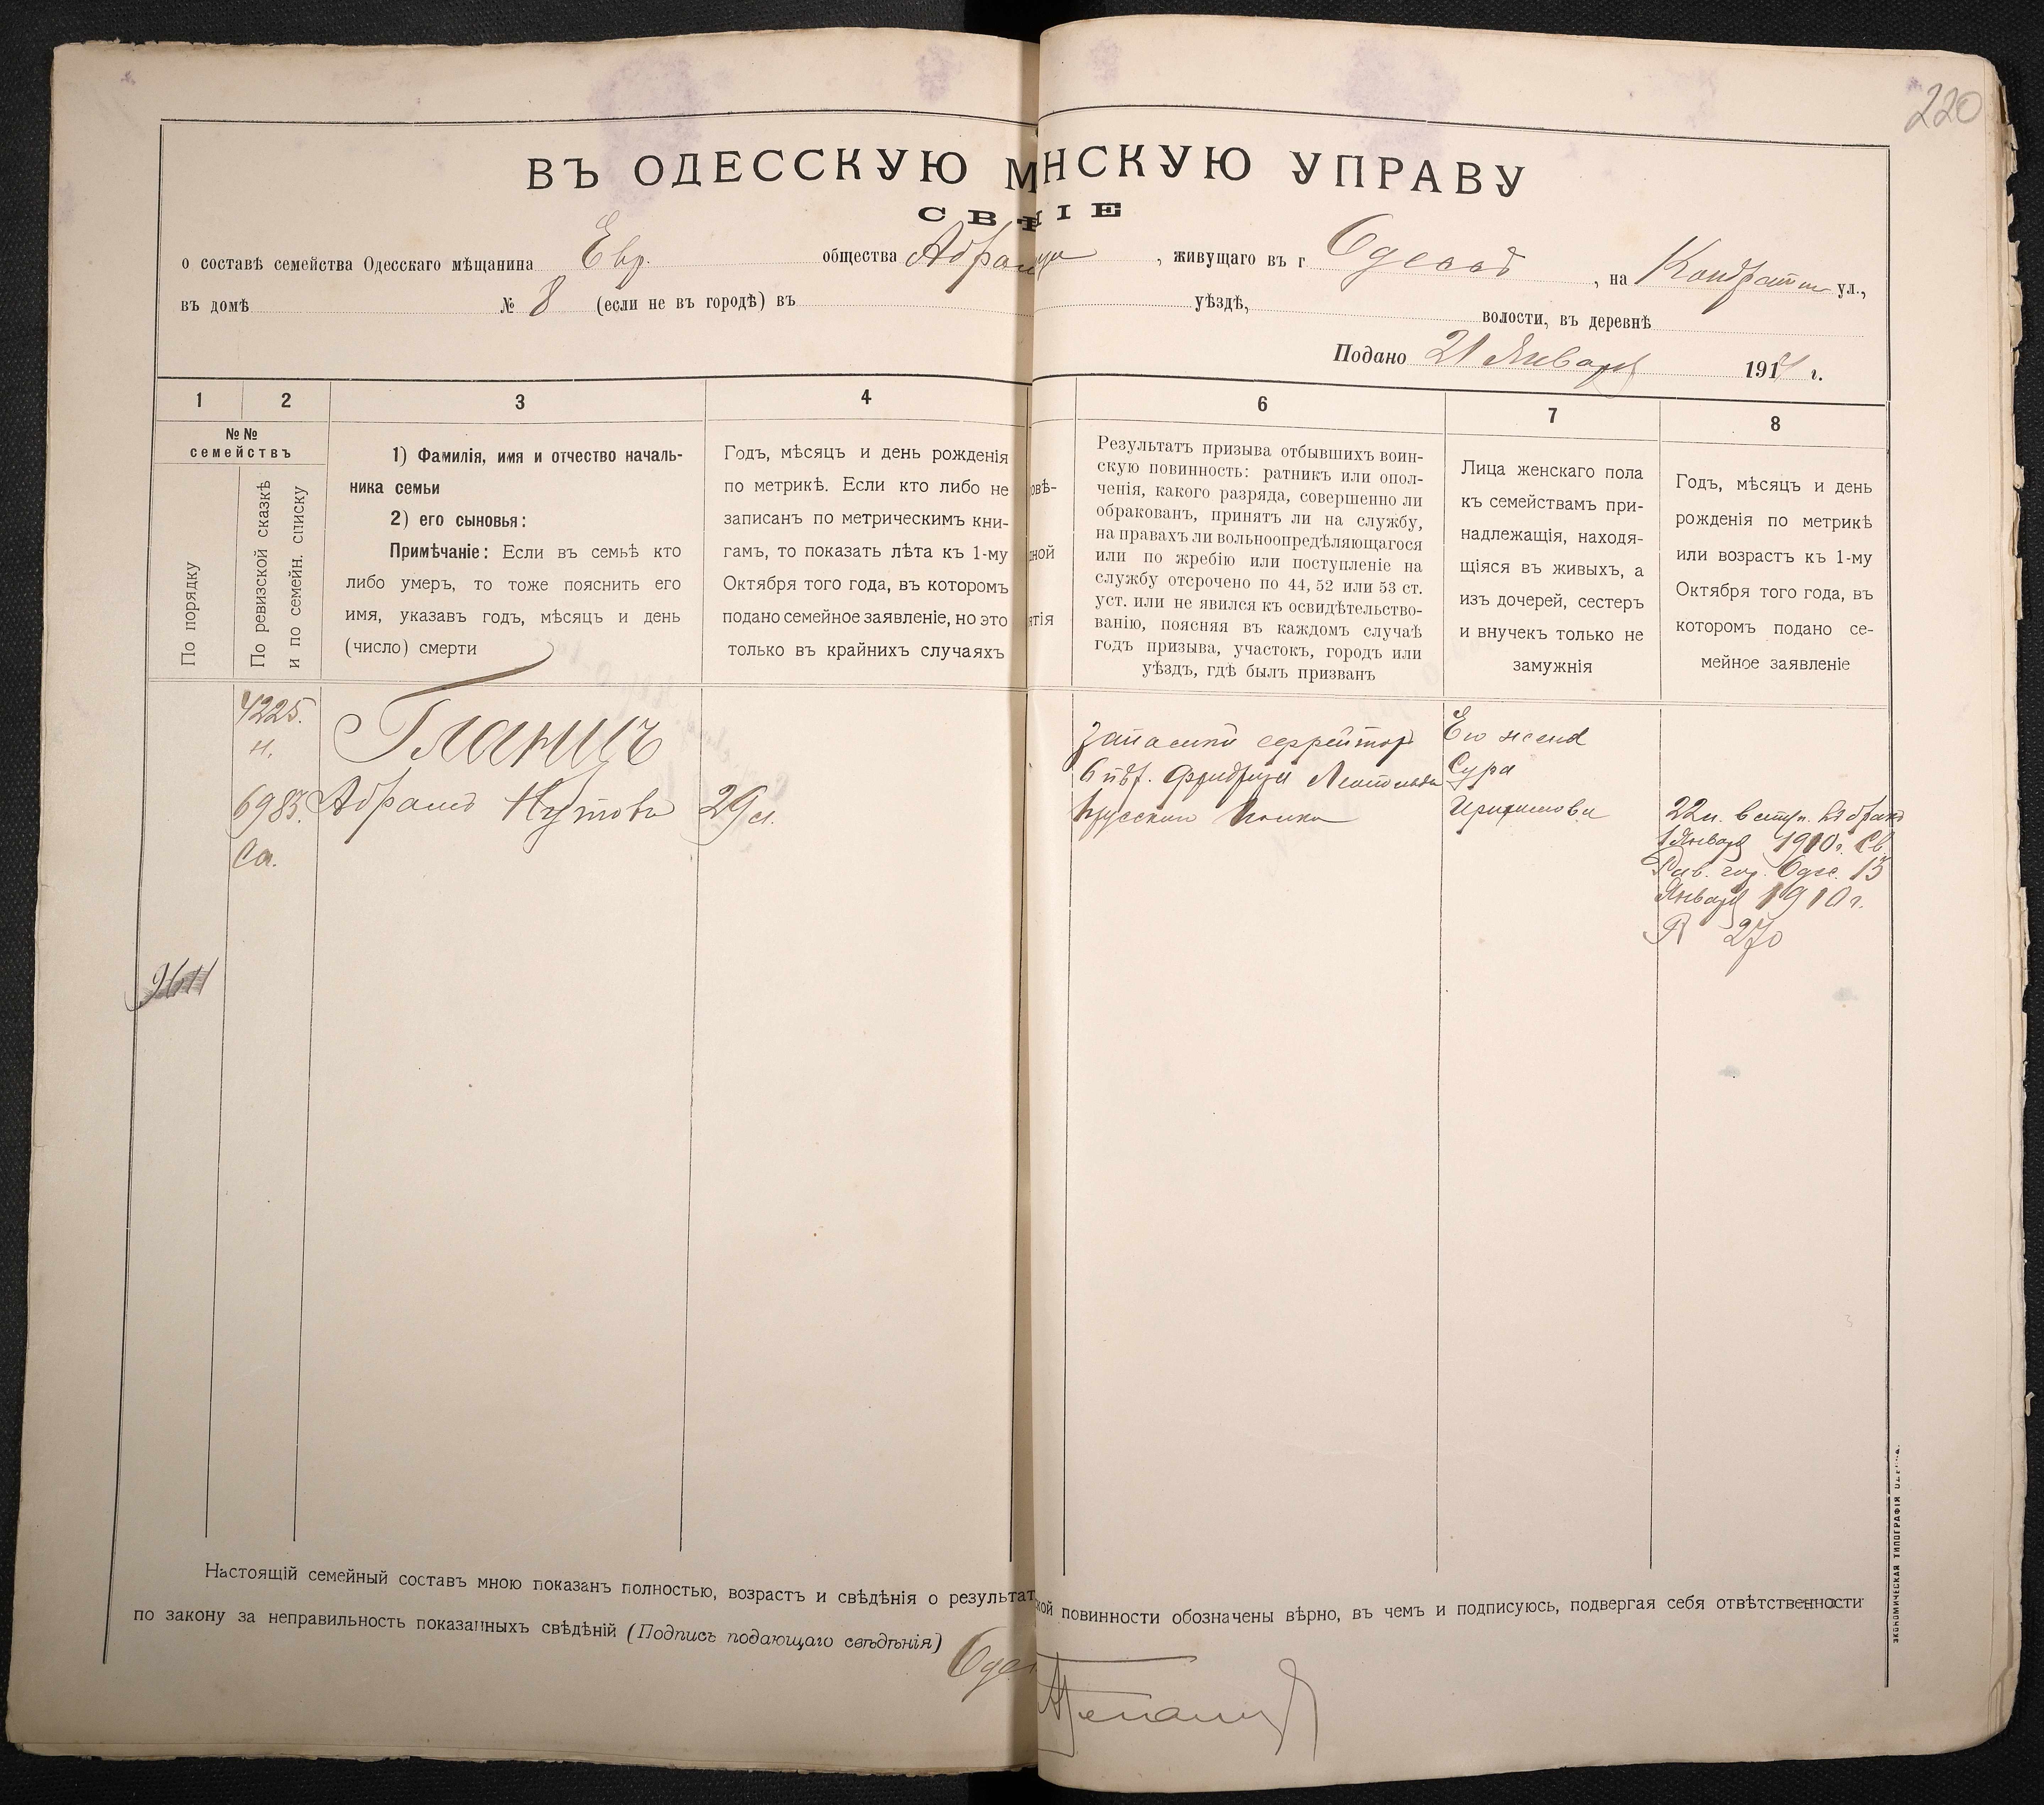 220
ВЪ ОДЕССКУЮ М НСКУЮ УПРАВУ
СВѢ ІЕ
о составѣ семейства Одесскаго мѣщанина Евр. общества Абрам , живущаго въ г Одессѣ , на ул.,
въ домѣ № 8 (если не въ городѣ) въ уѣздѣ, волости, въ деревнѣ
Подано 21 Января 1911 г.
1 2 3 4 6 7 8
№№
семействъ
По порядку
По ревизской сказкѣ
и по семейн. списку
1) Фамилія, имя и отчество началь-
ника семьи
2) его сыновья:
Примѣчаніе: Если въ семьѣ кто
либо умеръ, то тоже пояснить его
имя, указавъ годъ, мѣсяцъ и день
(число) смерти
Годъ, мѣсяцъ и день рожденія
по метрикѣ. Если кто либо не
записанъ по метрическимъ кни-
гамъ, то показать лѣта къ 1-му
Октября того года, въ которомъ
подано семейное заявленіе, но это
только въ крайнихъ случаяхъ
овѣ-
ной
ятія
Результатъ призыва отбывшихъ воин-
скую повинность: ратникъ или опол-
ченія, какого разряда, совершенно ли
обракованъ, принятъ ли на службу,
на правахъ ли вольноопредѣляющагося
или по жребію или поступленіе на
службу отсрочено по 44, 52 или 53 ст.
уст. или не явился къ освидѣтельство-
ванію, поясняя въ каждомъ случаѣ
годъ призыва, участокъ, городъ или
уѣздъ, гдѣ былъ призванъ
Лица женскаго пола
къ семействамъ при-
надлежащія, находя-
щіяся въ живыхъ, а
изъ дочерей, сестеръ
и внучекъ только не
замужнія
Годъ, мѣсяцъ и день
рожденія по метрикѣ
или возрастъ къ 1-му
Октября того года, въ
которомъ подано се-
мейное заявленіе
4225.
н.
6983.
Са.
Гланцъ
Абрамъ Нутовъ
29 л.
запасный ефрейторъ
6 пѣх. Леопольда
Прусскаго полка
Его жена
Сура
22 л. вступ. въ бракъ
1 Января 1910 г. Св.
Рав. гор. Одес. 13
Января 1910 г.
№ 270
9611
Настоящій семейный составъ мною показанъ полностью, возрастъ и свѣдѣнія о результат ской повинности обозначены вѣрно, въ чемъ и подписуюсь, подвергая себя отвѣтственности
по закону за неправильность показанныхъ свѣдѣній (Подпись подающаго свѣдѣнія)
Оде
ЭКОНОМИЧЕСКАЯ ТИПОГРАФІЯ